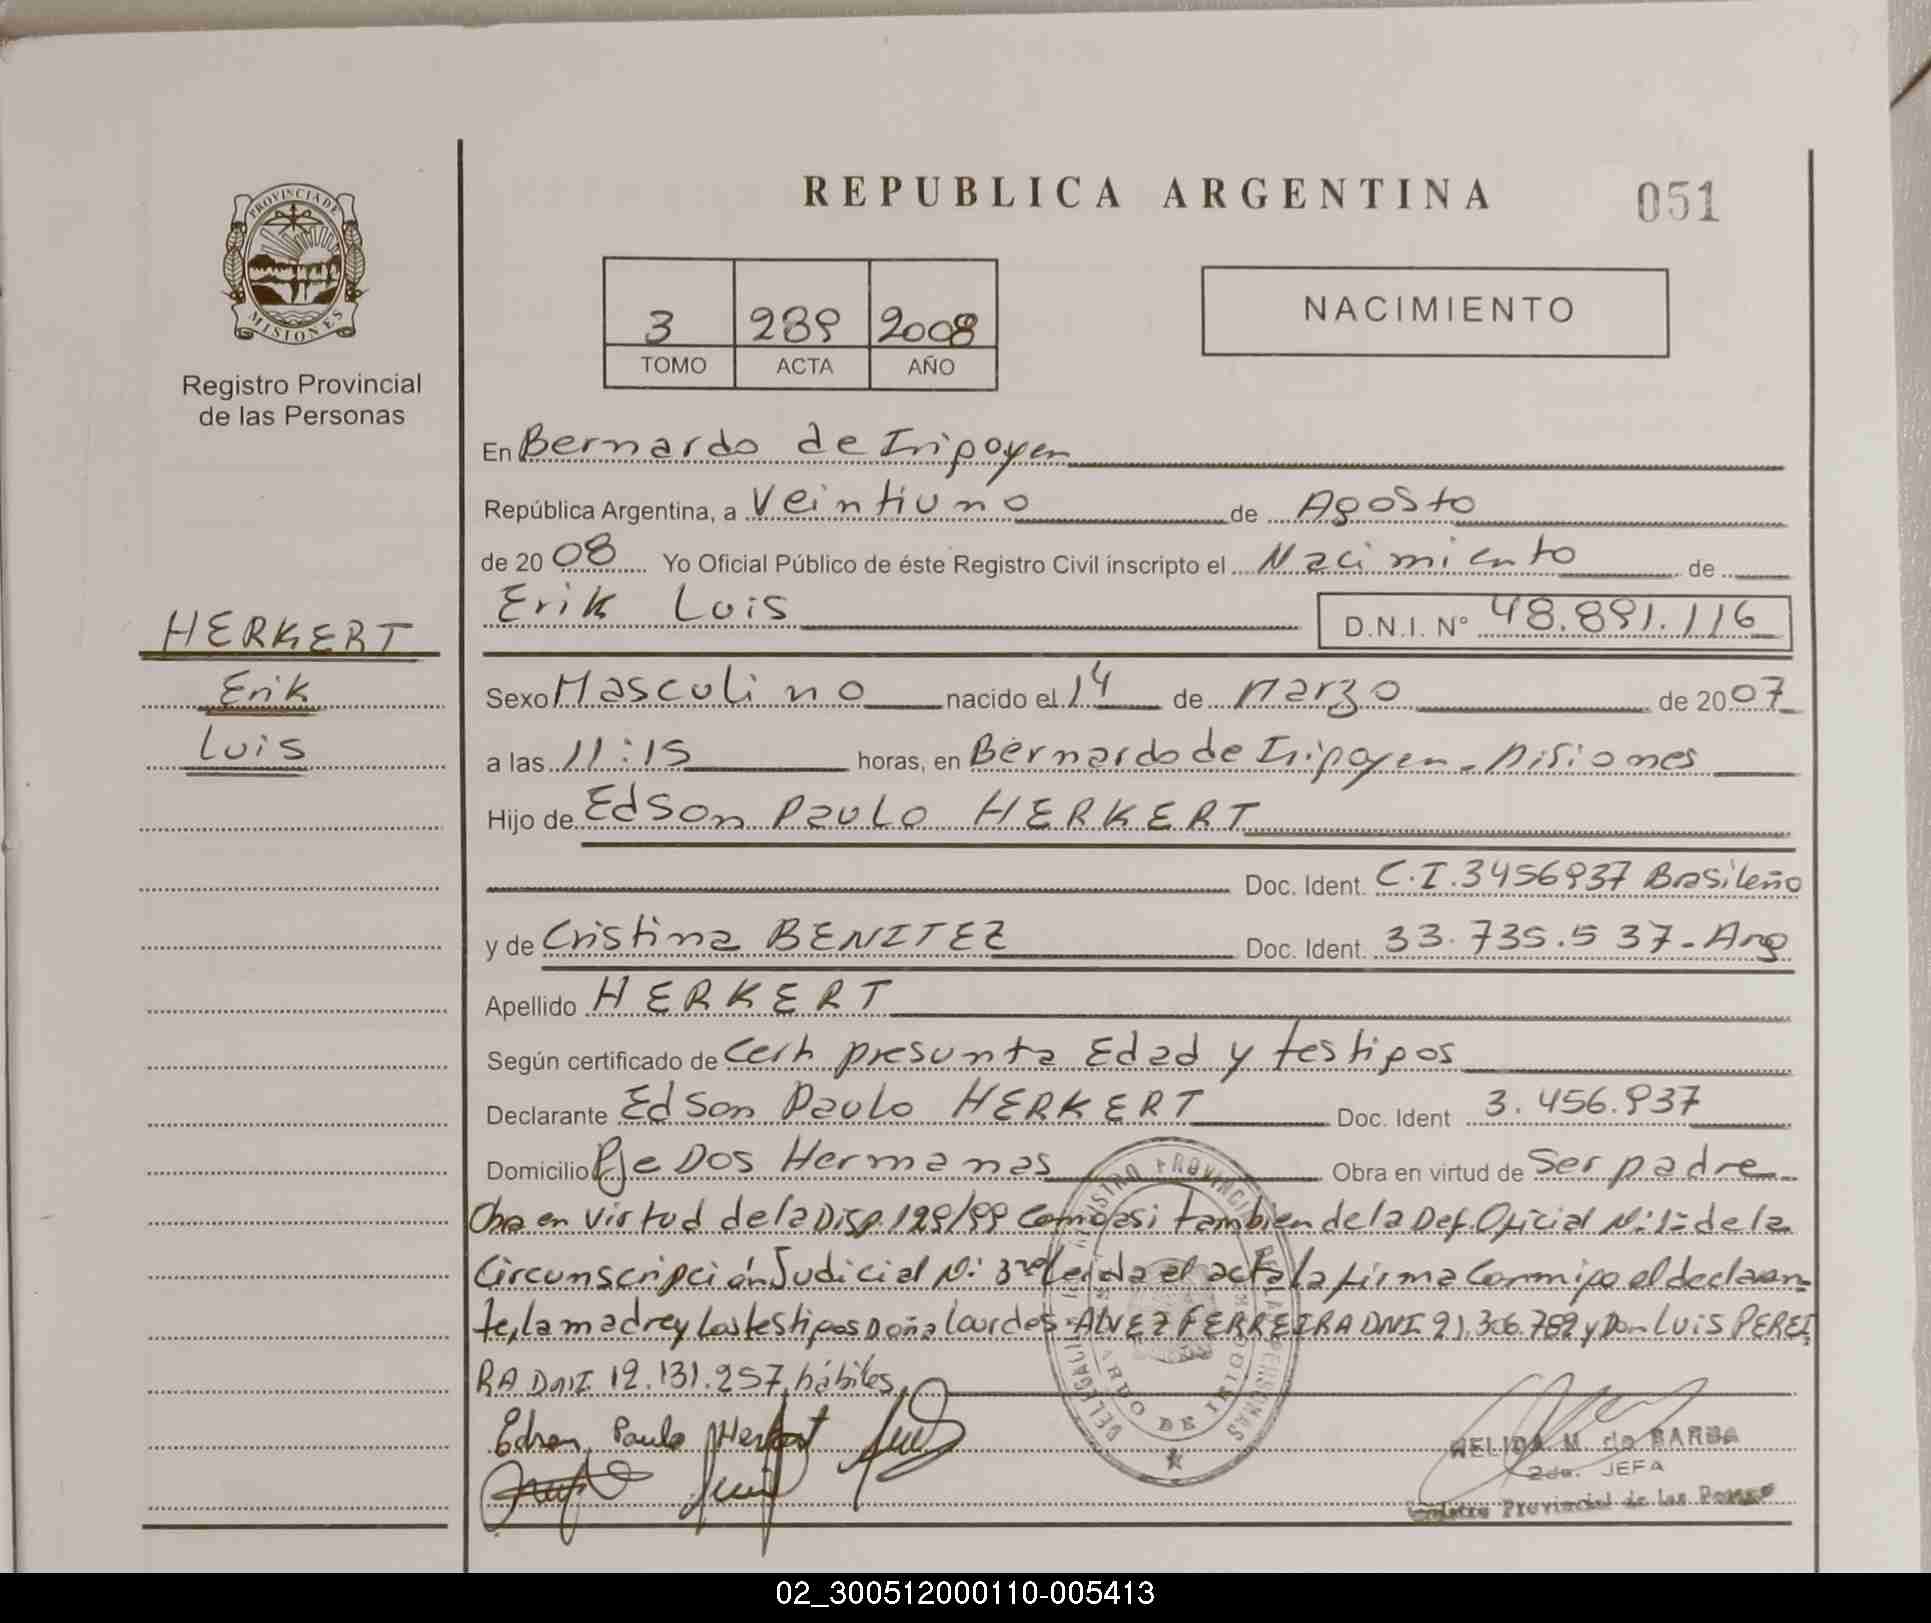 PROVINCIA DE
MISIONES
Registro Provincial
de las Personas
HERKERT
Erik
Luis
REPUBLICA ARGENTINA
051
3 289 2008
TOMO ACTA AÑO
NACIMIENTO
En Bernardo de Irigoyen
República Argentina, a Veintiuno de Agosto
de 2008 Yo Oficial Público de éste Registro Civil inscripto el Nacimiento de
Erik Luis D.N.I. N° 48.891.116
Sexo Masculino nacido el 14 de Marzo de 2007
a las 11:15 horas, en Bernardo de Irigoyen - Misiones
Hijo de Edson Paulo HERKERT
Doc. Ident. C.I. 3456937 Brasileño
y de Cristina BENITEZ Doc. Ident. 33.735.537 - Arg
Apellido HERKERT
Según certificado de Cert presunta Edad y testigos
Declarante Edson Paulo HERKERT Doc. Ident 3.456.937
Domicilio Pje Dos Hermanas Obra en virtud de Ser padre
Obra en virtud de la Disp. 129/99 Como asi tambien de la Def. Oficial N: 1= de la
Circunscripción Judicial N: 3ra Leida el acta la firma Conmigo el declaran-
te, la madre y los testigos Doña Lourdes ALVEZ FERREIRA DNI 21.306.789 y Don LUIS PEREI
RA DNI. 12.131.257, hábiles
Edson Paulo Herkert
NELIDA M. de BARBA
2da. JEFA
Registro Provincial de las Personas
REGISTRO PROVINCIAL DE LAS PERSONAS
DELEGACION
BERNARDO DE IRIGOYEN
02_300512000110-005413